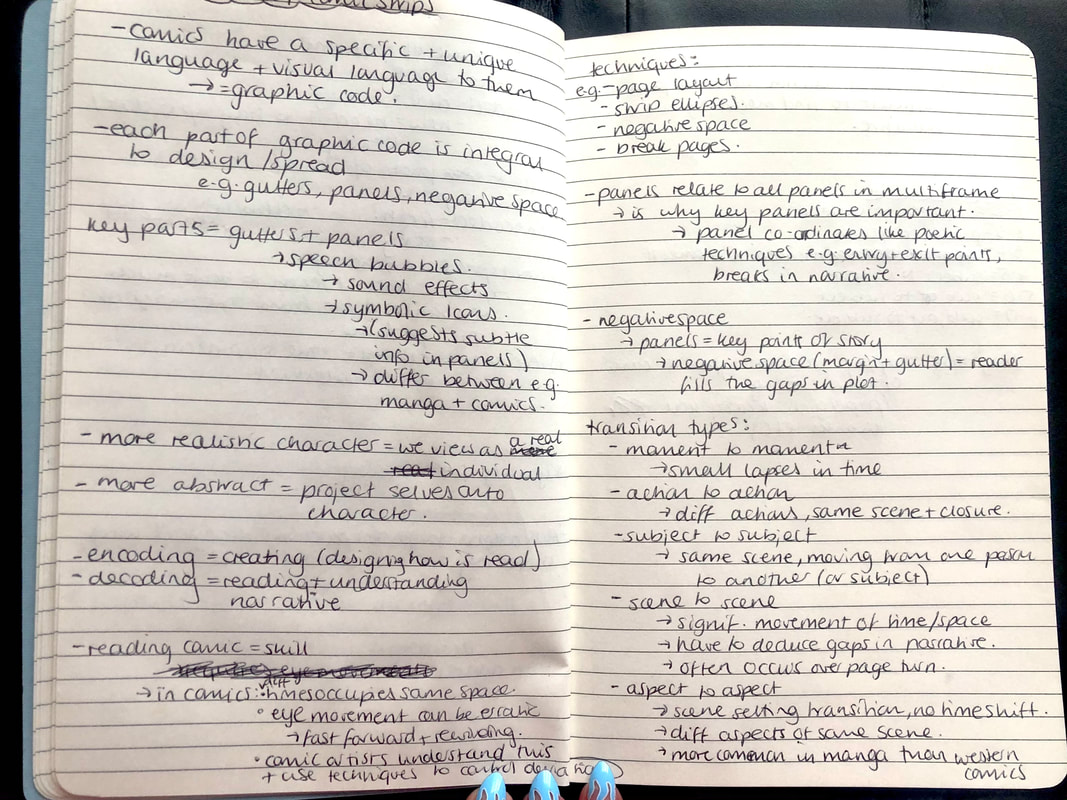 - comics have a specific + unique
language + visual language to them
→ = graphic code.
- each part of graphic code is integral
to design / spread
e.g. gutters, panels, negative space
key parts = gutters + panels
→ speech bubbles.
→ sound effects
→ symbolic icons.
→ (suggests subtle
info in panels)
→ differ between e.g.
manga + comics.
- more realistic character = we view as a real
individual
- more abstract = project selves onto
character.
- encoding = creating (designing how is read)
- decoding = reading + understanding
narrative
- reading comic = skill
requires eye movements
→ in comics: diff times occupies same space.
• eye movement can be erratic
→ fast forward + rewinding.
• comic artists understand this
+ use techniques to control deviation
techniques:
e.g. - page layout
- strip ellipses.
- negative space
- break pages.
- panels relate to all panels in multiframe
→ is why key panels are important.
→ panel co-ordinates like poetic
techniques e.g. entry + exit points,
breaks in narrative.
- negative space
→ panels = key points of story
→ negative space (margin + gutter) = reader
fills the gaps in plot.
transition types:
- moment to moment
→ small lapses in time
- action to action
→ diff actions, same scene + closure.
- subject to subject
→ same scene, moving from one person
to another (or subject)
- scene to scene
→ signif. movement of time/space
→ have to deduce gaps in narrative.
→ often occurs over page turn.
- aspect to aspect
→ scene setting transition, no time shift.
→ diff aspects of same scene.
→ more common in manga than western
comics